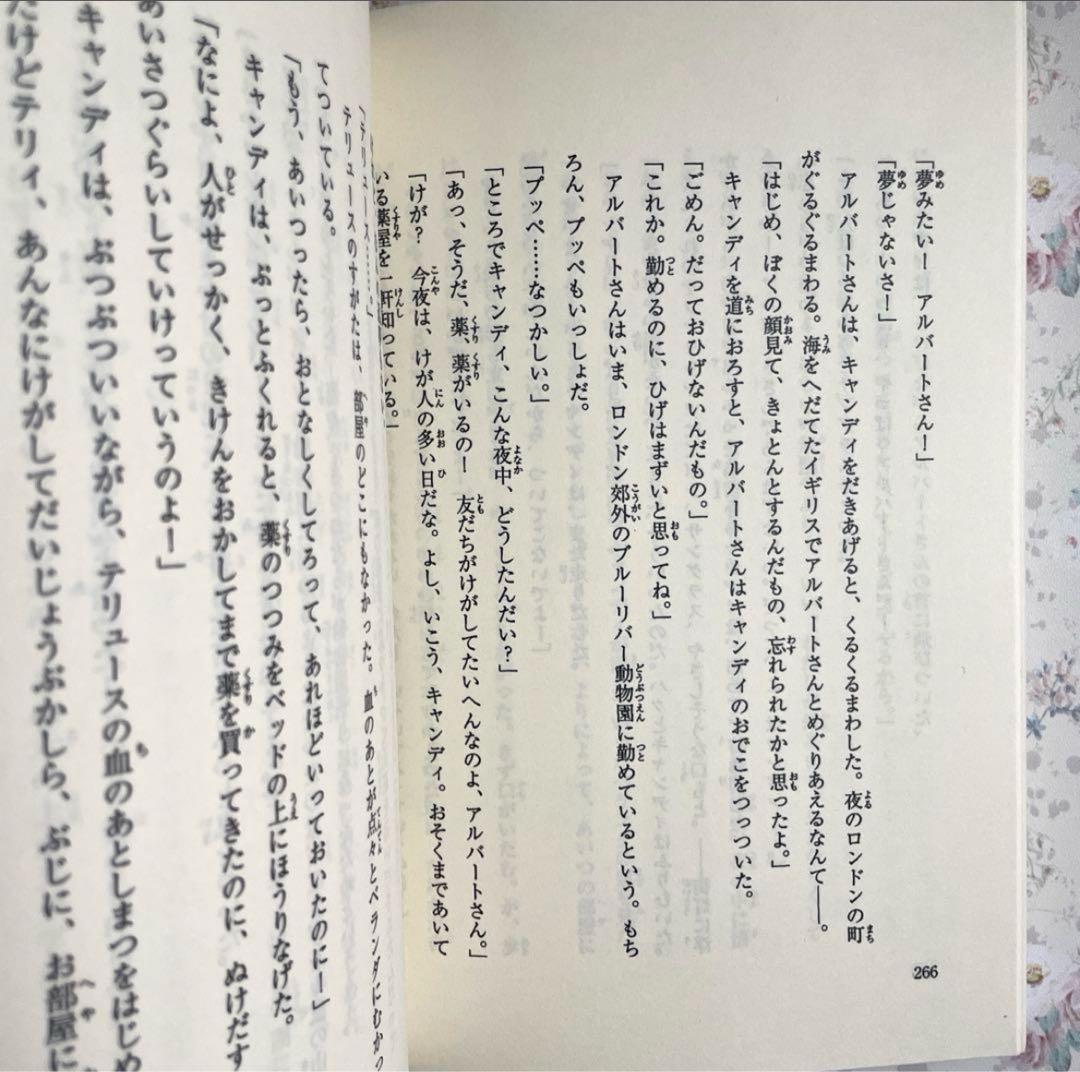 「夢みたい！　アルバートさん！」
「夢じゃないさ！」
　アルバートさんは、キャンディをだきあげると、くるくるまわした。夜のロンドンの町
がぐるぐるまわる。海をへだてたイギリスでアルバートさんとめぐりあえるなんて――。
「はじめ、ぼくの顔見て、きょとんとするんだもの、忘れられたかと思ったよ。」
　キャンディを道におろすと、アルバートさんはキャンディのおでこをつっついた。
「ごめん。だっておひげないんだもの。」
「これか。勤めるのに、ひげはまずいと思ってね。」
　アルバートさんはいま、ロンドン郊外のブルーリバー動物園に勤めているという。もち
ろん、プッペもいっしょだ。
「プッペ……なつかしい。」
「ところでキャンディ、こんな夜中、どうしたんだい？」
「あっ、そうだ、薬、薬がいるの！　友だちがけがしてたいへんなのよ、アルバートさん。」
「けが？　今夜は、けが人の多い日だな。よし、いこう、キャンディ。おそくまであいて
いる薬屋を一軒知っている。」
266
「テリュース……」
　テリュースのすがたは、部屋のどこにもなかった。血のあとが点々とベランダにむかっ
てついている。
「もう、あいつったら、おとなしくしてろって、あれほどいっておいたのに！」
　キャンディは、ぷっとふくれると、薬のつつみをベッドの上にほうりなげた。
「なによ、人がせっかく、きけんをおかしてまで薬を買ってきたのに、ぬけだす
あいさつぐらいしていけっていうのよ！」
キャンディは、ぶつぶついいながら、テリュースの血のあとしまつをはじめ
だけどテリィ、あんなにけがしてだいじょうぶかしら、ぶじに、お部屋に